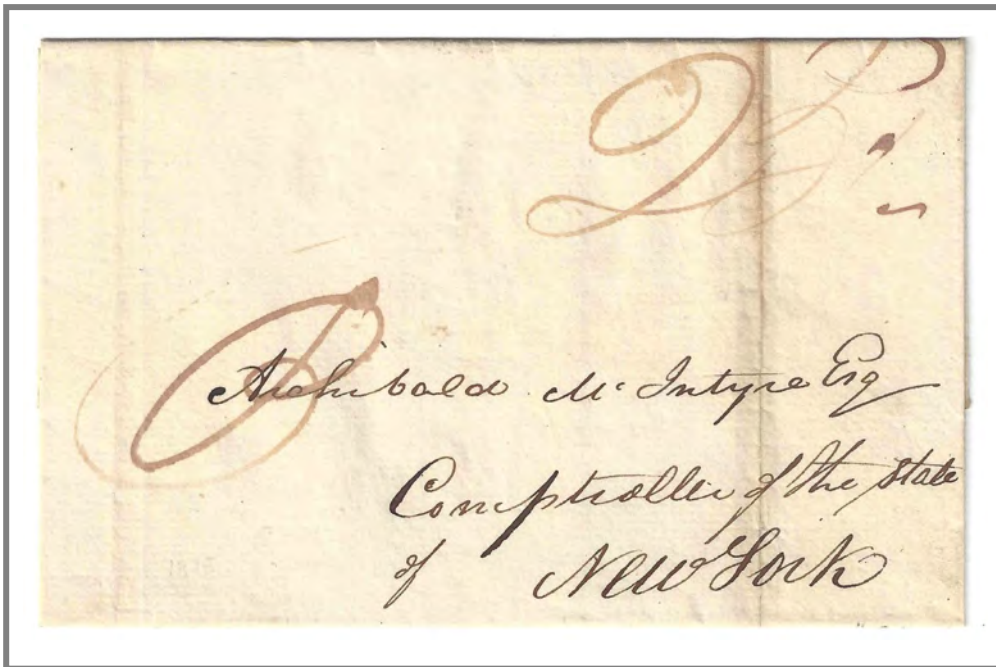 Archibald McIntyre Esq
Comptroller of the state
of New York